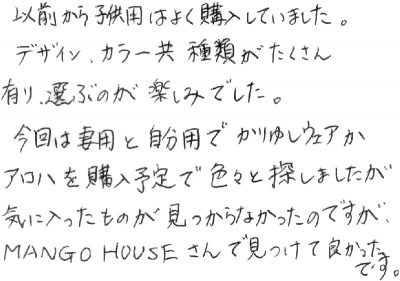 以前から子供用はよく購入していました。
デザイン、カラー共 種類がたくさん
有り、選ぶのが楽しみでした。
今回は妻用と自分用でかりゆしウェアか
アロハを購入予定で色々と探しましたが
気に入ったものが見つからなかったのですが、
MANGO HOUSEさんで見つけて良かった
です。